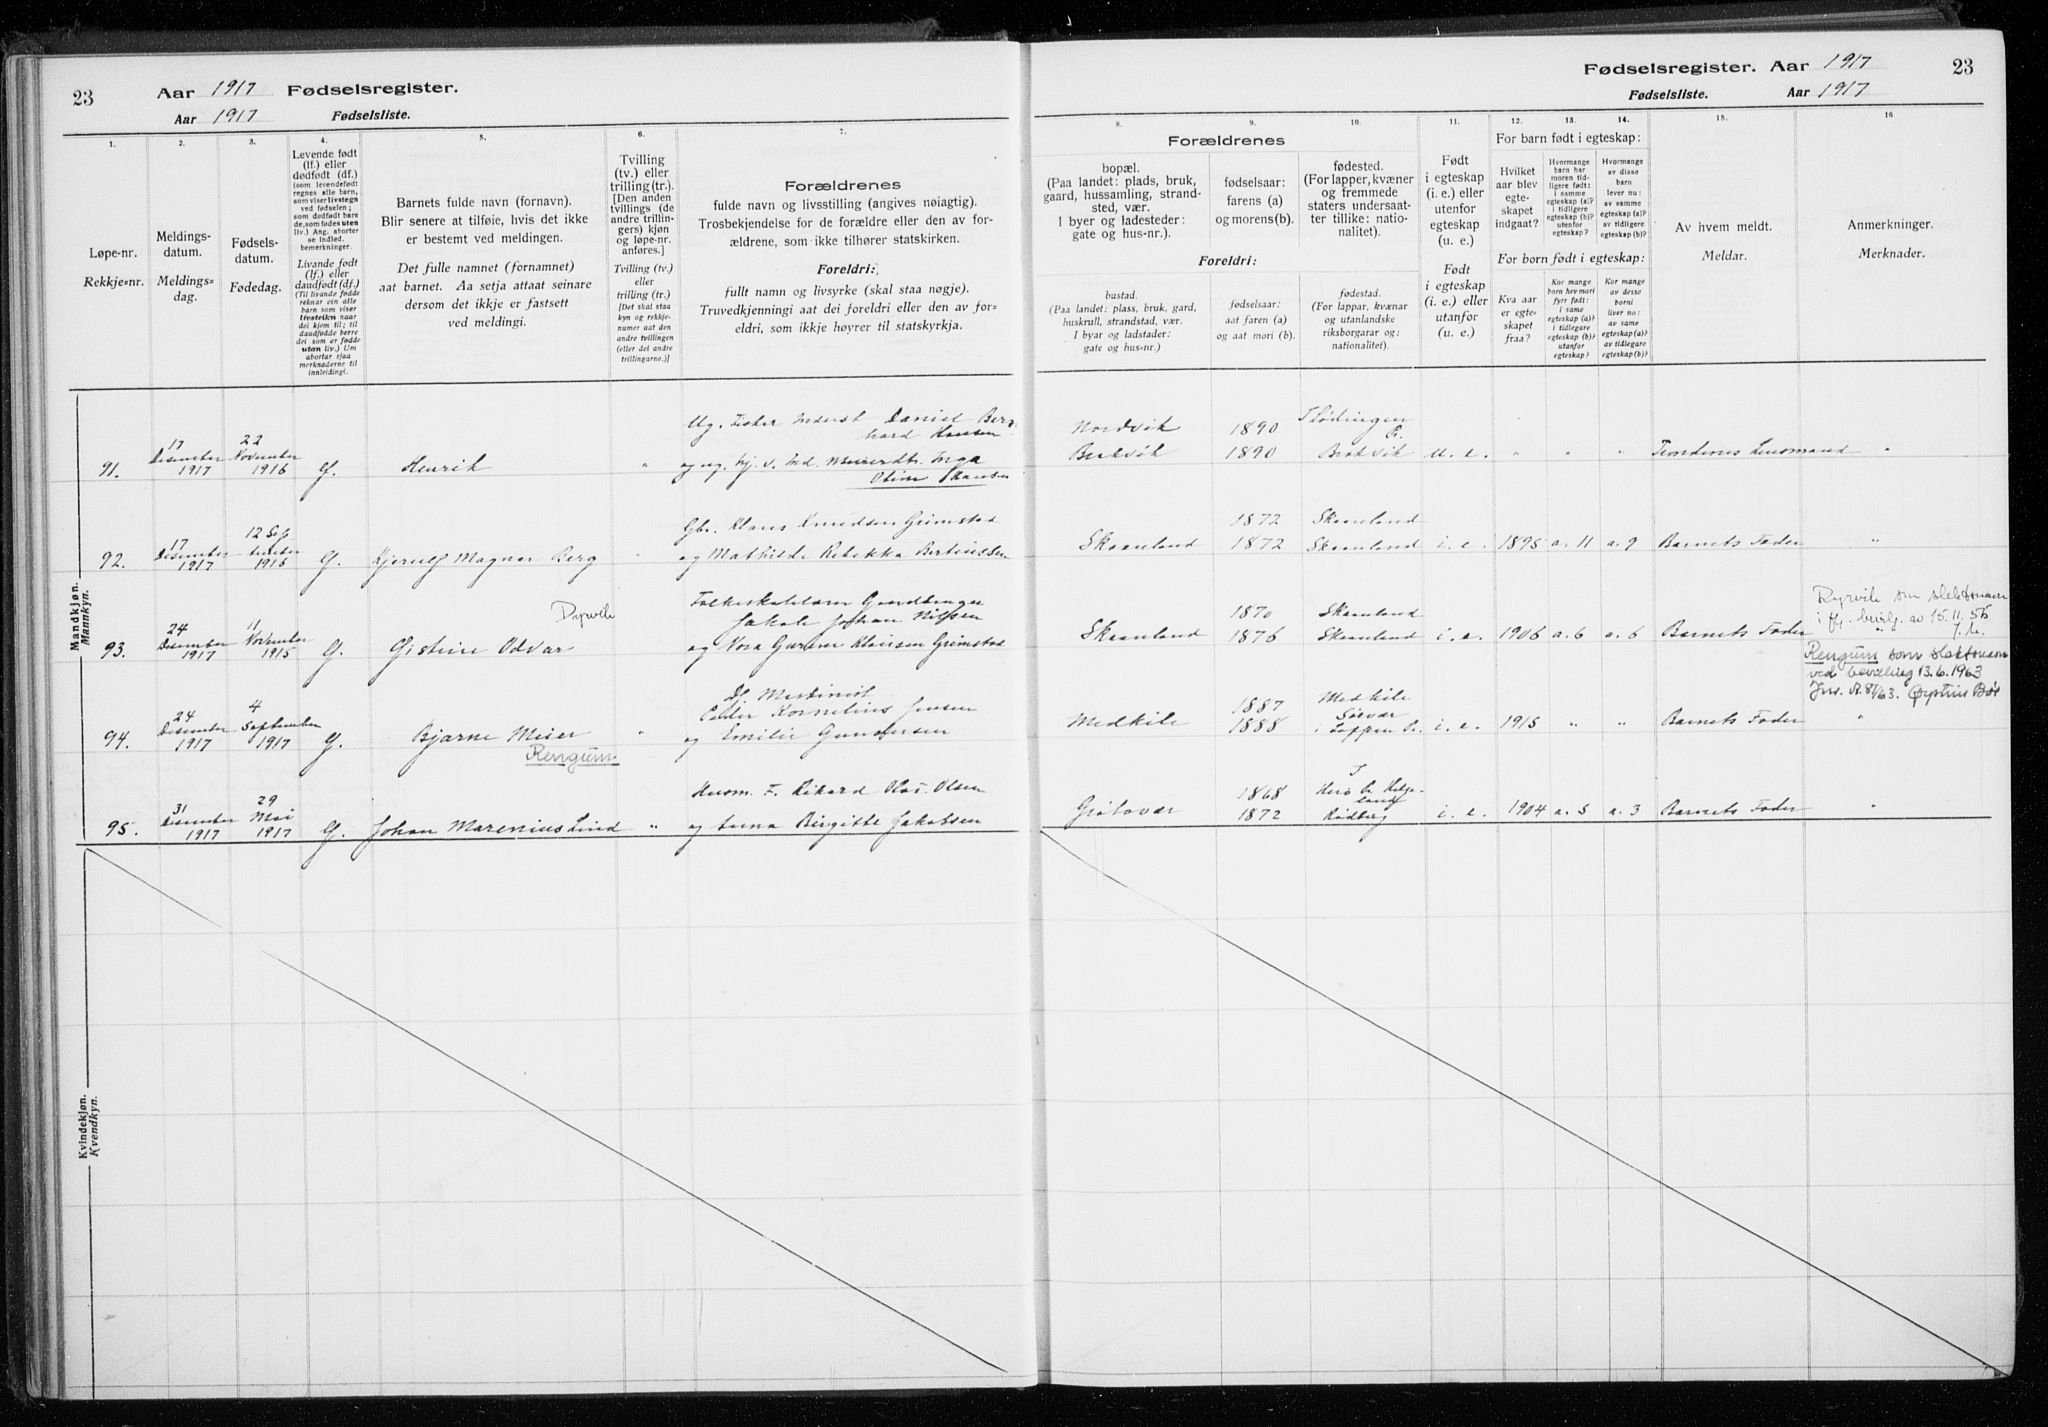 23
Aar 1917 Fødselsregister.
Aar 1917 Fødselsliste.
1.
2.
3.
4.
5.
6.
7.
Løpe-nr.
Rekkje-nr.
Meldings-
datum.
Meldings-
dag.
Fødsels-
datum.
Fødedag.
Levende født
(lf.) eller
dødfødt (df.)
(som levendefødt
regnes alle barn,
som viser livstegn
ved fødselen;
som dødfødt bare
de, som fødes uten
liv.) Ang. aborter
se indled.
bemerkninger.
Livande født
(lf.) eller
daudfødt (df.)
(Til livande fødde
reknar ein alle
barn som viser
livsteikn naar
dei kjem til; til
daudfødde berre
dei som er fødde
utan liv.) Um
abortar sjaa
merknaderne til
innleidingi.
Barnets fulde navn (fornavn).
Blir senere at tilføie, hvis det ikke
er bestemt ved meldingen.
Det fulle namnet (fornamnet)
aat barnet. Aa setja attaat seinare
dersom det ikkje er fastsett
ved meldingi.
Tvilling
(tv.) eller
trilling (tr.).
[Den anden
tvillings (de
andre trillin-
gers) kjøn
og løpe-nr.
anføres.]
Tvilling (tv.)
eller
trilling (tr.)
[Det skal staa
kyn og rekkje-
numer aat den
andre tvillingen
(eller dei andre
trillingarne.)]
Forældrenes
fulde navn og livsstilling (angives nøiagtig).
Trosbekjendelse for de forældre eller den av for-
ældrene, som ikke tilhører statskirken.
Foreldri:
fullt namn og livsyrke (skal staa nøgje).
Truvedkjenningi aat dei foreldri eller den av for-
eldri, som ikkje høyrer til statskyrkja.
Mandkjøn.
Mannkyn.
91.
17
Desember
1917
22
November
1916
Henrik
"
Ug. Fisker Daniel Bern-
hard Hansen
Inga
92.
17
Desember
1917
12 Sep
tember
1916
Kjerulf Magnar Berg
"
Gbr. Klaus Knudsen Grimstad
og Mathilde Rebekka Bertiussen
93.
24
Desember
1917
11
November
1915
Gisteine Odvar
Dyrvik
Folkeskolelærer Gaardbruger
Jakob Johan Nilsen
og Nora Klausen Grimstad
94.
24
Desember
1917
4
September
1917
Bjarne Meier
Rengum.
"
Kornelius Jensen
og Emilie Gundersen
95.
31
Desember
1917
29
Mai
1917
Johan Marenius Lind
"
Husm. F. Rikard Olai Olsen
og Anna Birgitte Jakobsen
Kvindekjøn.
Kvendkyn.
Fødselsregister. Aar 1917
23
Fødselsliste. Aar 1917
8.
9.
10.
11.
12.
13.
14.
15.
16
Forældrenes
bopæl.
(Paa landet: plads, bruk,
gaard, hussamling, strand-
sted, vær.
I byer og ladesteder:
gate og hus-nr.).
fødselsaar:
farens (a)
og morens(b).
fødested.
(For lapper, kvæner
og fremmede
staters undersaat-
ter tillike: natio-
nalitet).
Foreldri:
bustad.
(Paa landet: plass, bruk, gard,
huskrull, strandstad, vær.
I byar og ladstader:
gate og hus-nr.)
fødselsaar:
aat faren (a)
og aat mori (b).
fødestad.
(For lappar, kvænar
og utanlandske
riksborgarar og:
nationalitet).
Født
i egteskap
(i. e.) eller
utenfor
egteskap
(u. e.)
Født
i egteskap
(i. e.) eller
utanfor
(u. e.)
For barn født i egteskap:
Hvilket
aar blev
egte-
skapet
indgaat?
Hvormange
barn har
moren tid-
ligere født:
i samme
egteskap (a)?
i tidligere
egteskap (b)?
utenfor
egteskap?
Hvormange
av disse
barn
lever nu:
av samme
egteskap (a)?
av tidligere
egteskap (b)?
For born født i egteskap:
Kva aar
er egte-
skapet
fraa?
Kor mange
born hev mori
fyrr født:
i same
egteskap (a)?
i tidlegare
egteskap (b)?
utanfor
egteskap?
Kor mange
av desse
borni
liver no:
av same
egteskap (a)?
av tidlegare
egteskap (b)?
Av hvem meldt.
Meldar.
Anmerkninger.
Merknader.
Nordvik
1890
Berkvik
1890
u. e.
" " "
Tjendenes Lensmand
"
Skaanland
1872
1872
Skaanland
Skaanland
i. e. 1895 a. 11 a. 9
Barnets Fader
"
Skaanland
1870
1876
Skaanland
Skaanland
i. e. 1906 a. 6 a. 6
Barnets Fader
som slektsnavn
i flg. bevilg. av 15.11.56
Rengum som slektsnavn
ved bevilling 13.6.1963
Medkile
1887
1888
Medkile
i Loppen
i. e. 1915 " "
Barnets Fader
"
Grøtavær
1868
1872
Herø
Rødberg
i. e. 1904 a. 3 a. 3
Barnets Fader
"